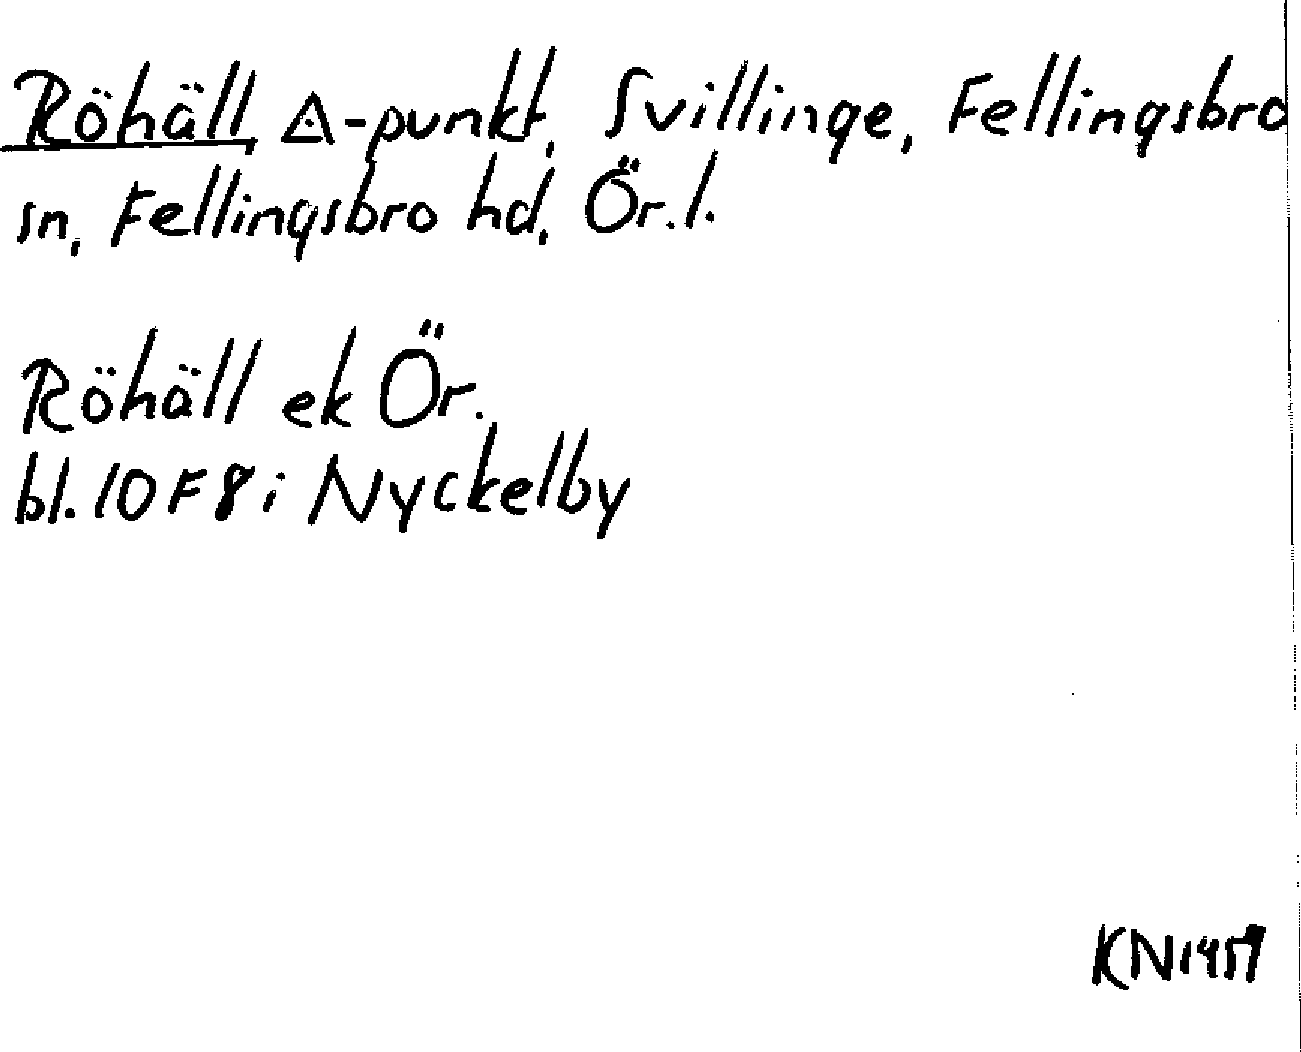 Röhäll, △-punkt, Svillinge, Fellingsbro
sn, Fellingsbro hd, Ör.l.
Röhäll ek Ör.
bl. 10F8i Nyckelby